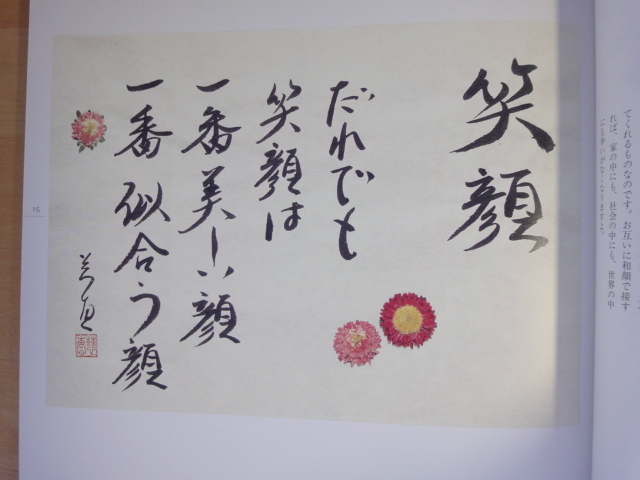 てくれるものなのです。お互いに和顔で接す
れば、家の中にも、社会の中にも、世界の中
にも争いがなくなりますよ。
笑顔
だれでも
笑顔は
一番美しい顔
一番似合う顔
15